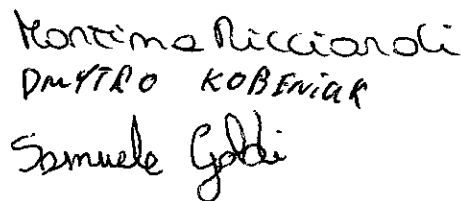 Martina Ricciardi
DMYTRO KOBENIAK
Samuele Goldi